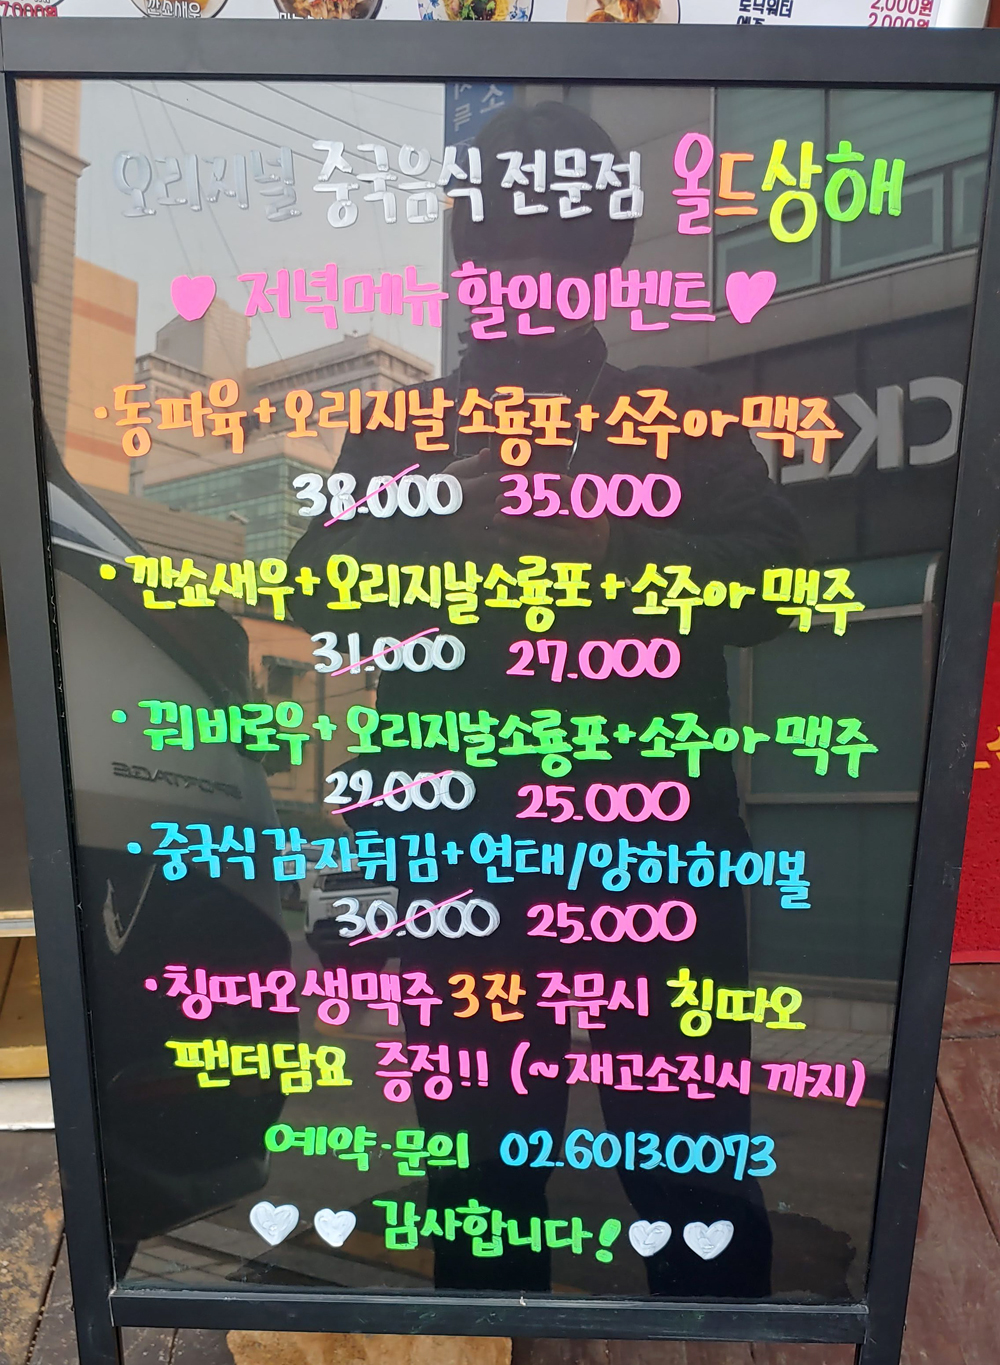 7,000원
깐쇼새우
토닉워터
2,000원
2,000원
오리지널 중국음식 전문점 올드상해
♥ 저녁메뉴 할인이벤트 ♥
·동파육+오리지날소룡포+소주or맥주
38.000 35.000
·깐쇼새우+오리지날소룡포+소주or맥주
31.000 27.000
·꿔바로우+오리지날소룡포+소주or맥주
29.000 25.000
·중국식감자튀김+연태/양하하이볼
30.000 25.000
·칭따오생맥주 3잔 주문시 칭따오
팬더담요 증정!! (~재고소진시 까지)
예약·문의 02.6013.0073
♥♥ 감사합니다! ♥♥
SPORTAGE